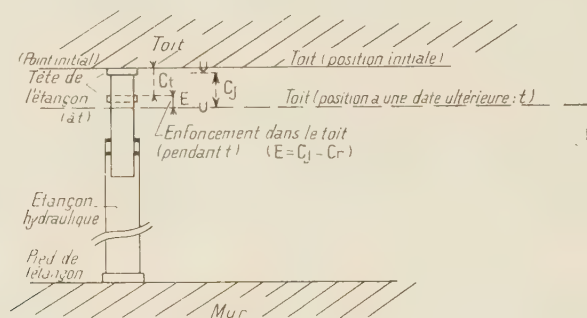 Toit
(Point initial)
Toit (position initiale)
Tête de
l'étançon
(à t)
Ct
Cj
E
Toit (position a une date ultérieure : t)
Enfoncement dans le toit
(pendant t) (E = Cj - Cr)
Etançon
hydraulique
Pied de
l'étançon
Mur